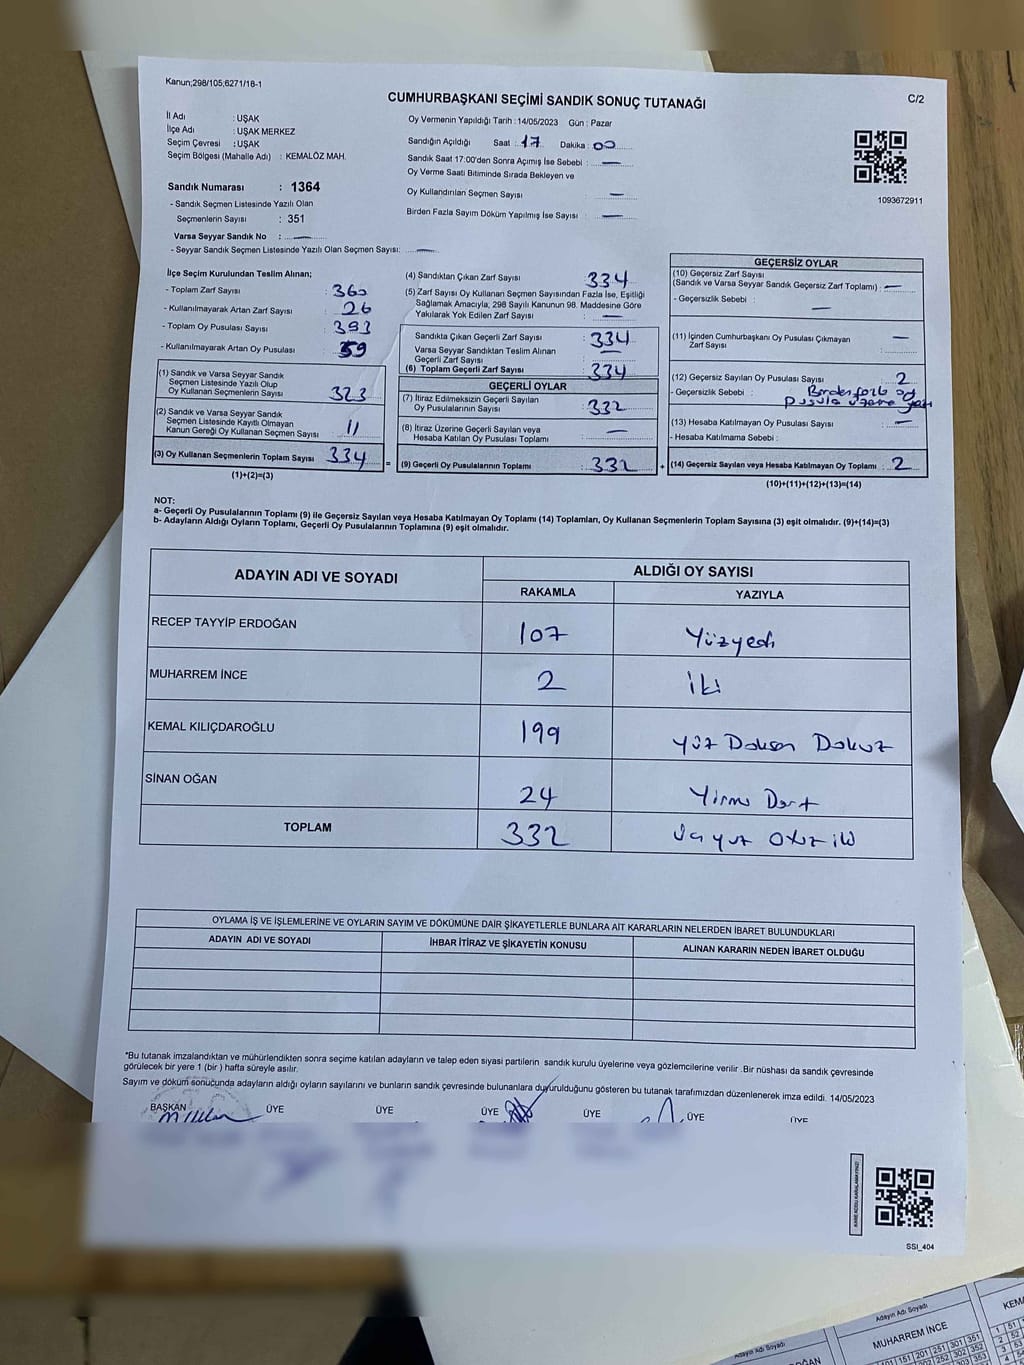 Kanun;298/105,6271/18-1
CUMHURBAŞKANI SEÇİMİ SANDIK SONUÇ TUTANAĞI
C/2
İl Adı : UŞAK
İlçe Adı : UŞAK MERKEZ
Seçim Çevresi : UŞAK
Seçim Bölgesi (Mahalle Adı) : KEMALÖZ MAH.
Oy Vermenin Yapıldığı Tarih : 14/05/2023 Gün : Pazar
Sandığın Açıldığı Saat : 17 Dakika : 00
Sandık Saat 17:00'den Sonra Açımış İse Sebebi : —
Oy Verme Saati Bitiminde Sırada Bekleyen ve
Oy Kullandırılan Seçmen Sayısı —
Birden Fazla Sayım Döküm Yapılmış İse Sayısı : —
1093672911
Sandık Numarası : 1364
- Sandık Seçmen Listesinde Yazılı Olan
Seçmenlerin Sayısı : 351
Varsa Seyyar Sandık No : —
- Seyyar Sandık Seçmen Listesinde Yazılı Olan Seçmen Sayısı: —
İlçe Seçim Kurulundan Teslim Alınan;
- Toplam Zarf Sayısı : 360
- Kullanılmayarak Artan Zarf Sayısı : 26
- Toplam Oy Pusulası Sayısı : 393
- Kullanılmayarak Artan Oy Pusulası : 59
(1) Sandık ve Varsa Seyyar Sandık
Seçmen Listesinde Yazılı Olup
Oy Kullanan Seçmenlerin Sayısı : 323
(2) Sandık ve Varsa Seyyar Sandık
Seçmen Listesinde Kayıtlı Olmayan
Kanun Gereği Oy Kullanan Seçmen Sayısı : 11
(3) Oy Kullanan Seçmenlerin Toplam Sayısı : 334
(1)+(2)=(3)
(4) Sandıktan Çıkan Zarf Sayısı : 334
(5) Zarf Sayısı Oy Kullanan Seçmen Sayısından Fazla İse, Eşitliği
Sağlamak Amacıyla, 298 Sayılı Kanunun 98. Maddesine Göre
Yakılarak Yok Edilen Zarf Sayısı : —
Sandıkta Çıkan Geçerli Zarf Sayısı : 334
Varsa Seyyar Sandıktan Teslim Alınan
Geçerli Zarf Sayısı : —
(6) Toplam Geçerli Zarf Sayısı : 334
GEÇERLİ OYLAR
(7) İtiraz Edilmeksizin Geçerli Sayılan
Oy Pusulalarının Sayısı : 332
(8) İtiraz Üzerine Geçerli Sayılan veya
Hesaba Katılan Oy Pusulası Toplamı : —
= (9) Geçerli Oy Pusulalarının Toplamı : 332
GEÇERSİZ OYLAR
(10) Geçersiz Zarf Sayısı
(Sandık ve Varsa Seyyar Sandık Geçersiz Zarf Toplamı) : —
- Geçersizlik Sebebi : —
(11) İçinden Cumhurbaşkanı Oy Pusulası Çıkmayan
Zarf Sayısı : —
(12) Geçersiz Sayılan Oy Pusulası Sayısı : 2
- Geçersizlik Sebebi : Birden fazla oy
pusula üzerine
(13) Hesaba Katılmayan Oy Pusulası Sayısı : —
- Hesaba Katılmama Sebebi :
+ (14) Geçersiz Sayılan veya Hesaba Katılmayan Oy Toplamı : 2
(10)+(11)+(12)+(13)=(14)
NOT:
a- Geçerli Oy Pusulalarının Toplamı (9) ile Geçersiz Sayılan veya Hesaba Katılmayan Oy Toplamı (14) Toplamları, Oy Kullanan Seçmenlerin Toplam Sayısına (3) eşit olmalıdır. (9)+(14)=(3)
b- Adayların Aldığı Oyların Toplamı, Geçerli Oy Pusulalarının Toplamına (9) eşit olmalıdır.
ADAYIN ADI VE SOYADI
ALDIĞI OY SAYISI
RAKAMLA YAZIYLA
RECEP TAYYİP ERDOĞAN 107 Yüzyedi
MUHARREM İNCE 2 İki
KEMAL KILIÇDAROĞLU 199 Yüz Doksan Dokuz
SİNAN OĞAN 24 Yirmi Dört
TOPLAM 332 Üçyüz Otuz iki
OYLAMA İŞ VE İŞLEMLERİNE VE OYLARIN SAYIM VE DÖKÜMÜNE DAİR ŞİKAYETLERLE BUNLARA AİT KARARLARIN NELERDEN İBARET BULUNDUKLARI
ADAYIN ADI VE SOYADI İHBAR İTİRAZ VE ŞİKAYETİN KONUSU ALINAN KARARIN NEDEN İBARET OLDUĞU
*Bu tutanak imzalandıktan ve mühürlendikten sonra seçime katılan adayların ve talep eden siyasi partilerin sandık kurulu üyelerine veya gözlemcilerine verilir .Bir nüshası da sandık çevresinde
görülecek bir yere 1 (bir ) hafta süreyle asılır.
Sayım ve döküm sonucunda adayların aldığı oyların sayılarını ve bunların sandık çevresinde bulunanlara duyurulduğunu gösteren bu tutanak tarafımızdan düzenlenerek imza edildi. 14/05/2023
BAŞKAN ÜYE ÜYE ÜYE ÜYE ÜYE ÜYE
SSI_404
Adayın Adı Soyadı
MUHARREM İNCE
Adayın Adı Soyadı